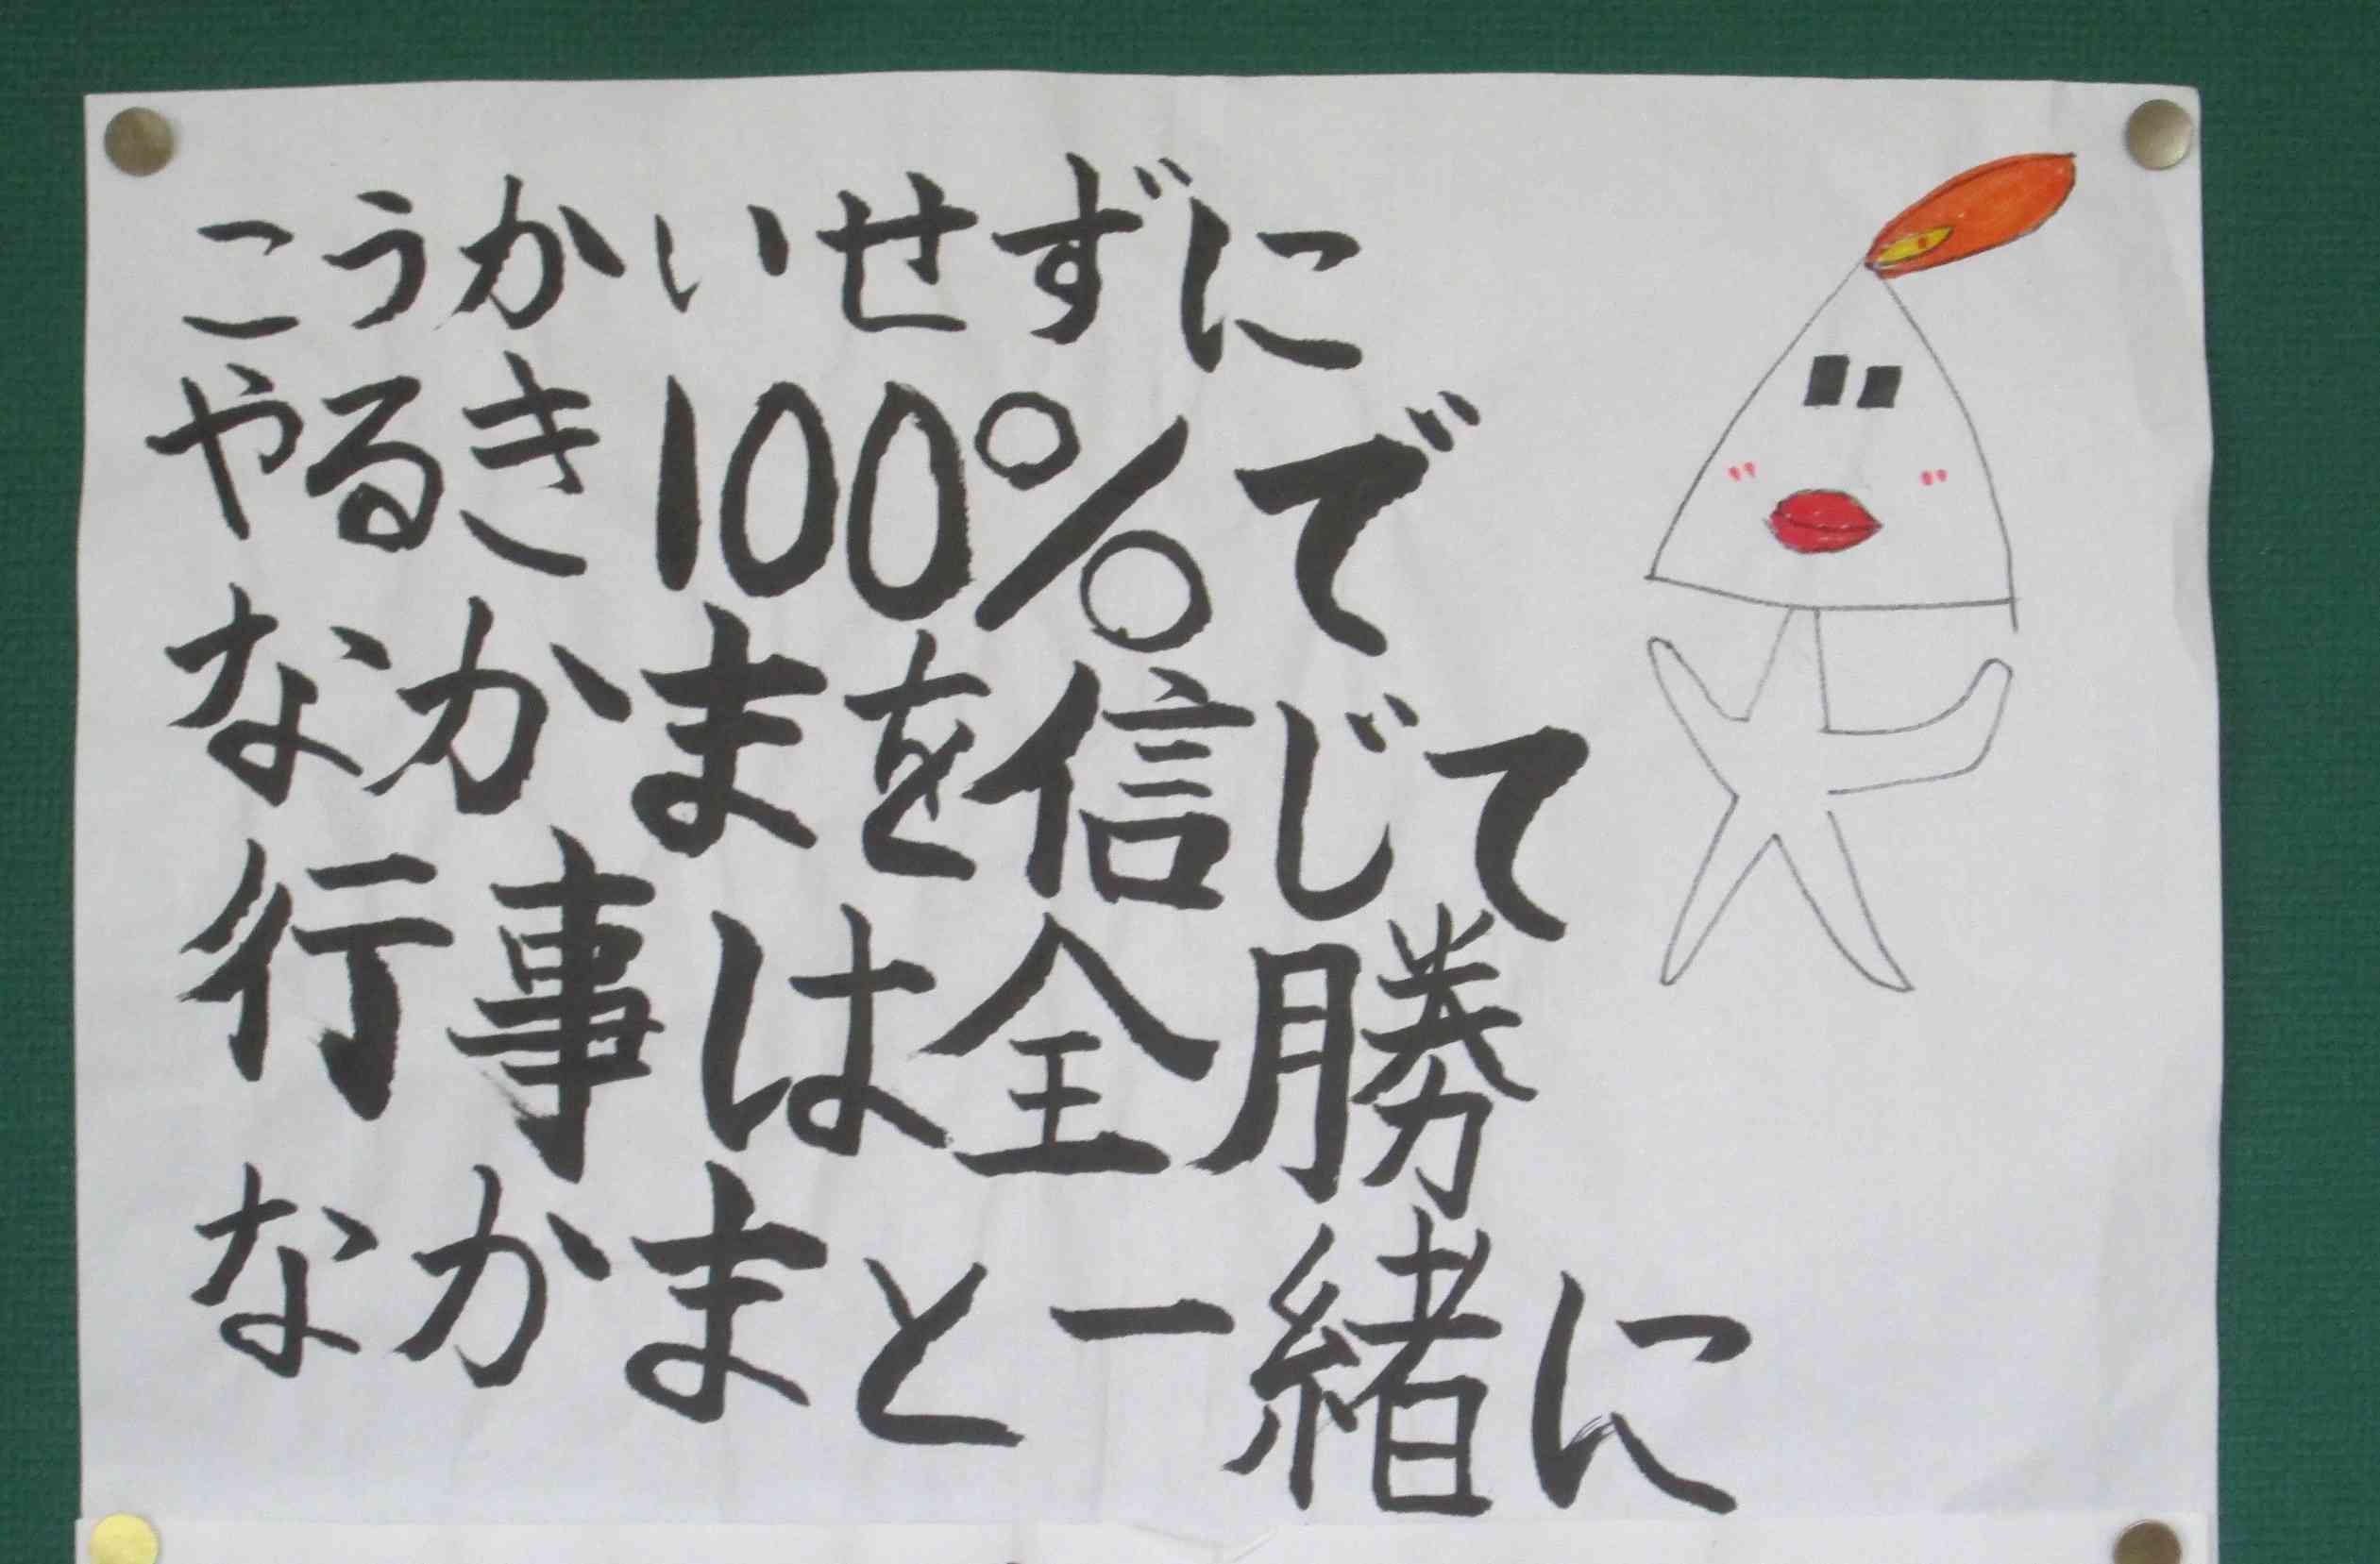 こうかいせずに
やるき100%で
なかまを信じて
行事は全勝
なかまと一緒に